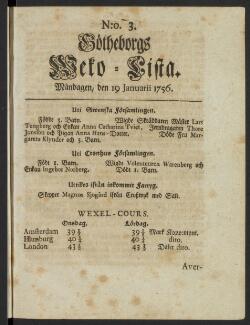 N:o. 3.
Götheborgs
Weko-Lista.
Måndagen, den 19 Januarii 1756.
Uti Swenska Församlingen.
Födde 3. Barn. Wigde Skräddare Mäster Lars
Tengberg och Enkan Anna Catharina
Jonsson och Pigan Anna Hans-Dotter. Döde Fru Mar-
gareta Klynder och 3. Barn.
Uti Crosthuus Församlingen.
Födt 1. Barn. Wigde Volonteuren Warenberg och
Enkan Ingebor Norberg. Födt 1. Barn.
Utrikes ifrån inkomne Fartyg.
Skeppar Magnus Sjogård ifrån med Salt.
WEXEL-COURS.
Onsdag. Lördag.
Amsterdam 39 39 Mark Kopp:mynt.
Hamburg 40 40 dito.
London 43 43 Daler dito.
Aver-